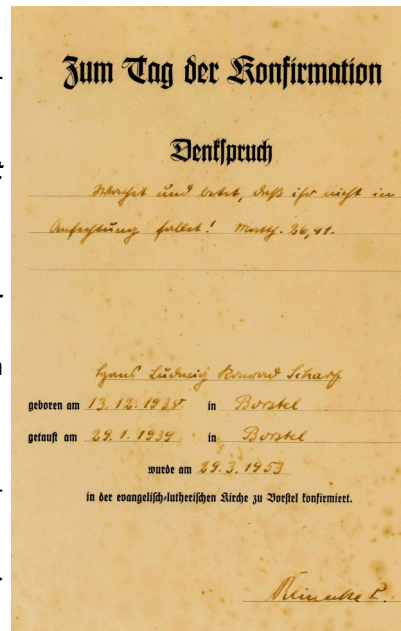 Zum Tag der Konfirmation
Denkspruch
Wachet und betet, daß ihr nicht in
Anfechtung fallet! Matth. 26,41.
Hans Ludwig Konrad Scharf
geboren am 13.12.1938 in Borstel
getauft am 29.1.1939 in Borstel
wurde am 29.3.1953
in der evangelisch-lutherischen Kirche zu Borstel konfirmiert.
Reinecke P.